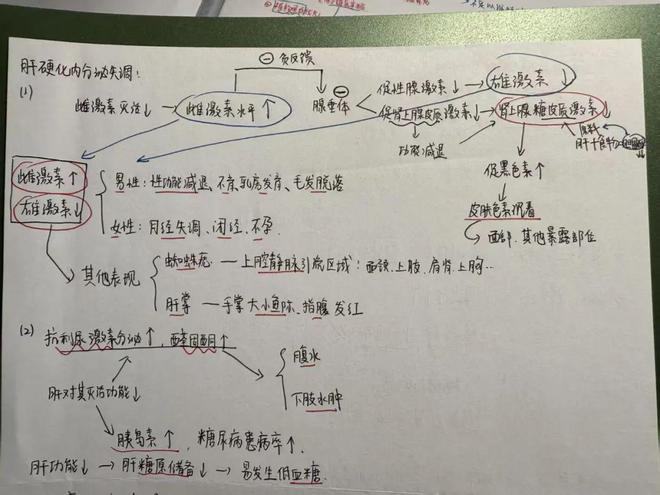 肝硬化内分泌失调：
(1)
⊖负反馈
雌激素灭活↓→雌激素水平↑
腺垂体 ⊖
促性腺激素↓→雄激素↓
促肾上腺皮质激素↓→肾上腺糖皮质激素↓
功能减退
原料
肝＋合成
促黑色素↑
皮肤色素沉着
面部、其他暴露部位
雌激素↑
雄激素↓
男性：性功能减退、不育、乳房发育、毛发脱落
女性：月经失调、闭经、不孕
其他表现
蜘蛛痣—上腔静脉引流区域：面颈、上肢、肩背、上胸…
肝掌—手掌大小鱼际、指腹发红
(2) 抗利尿激素分泌↑，醛固酮↑
腹水
下肢水肿
肝对其灭活功能↓
胰岛素↑，糖尿病患病率↑.
肝功能↓→肝糖原储备↓→易发生低血糖.